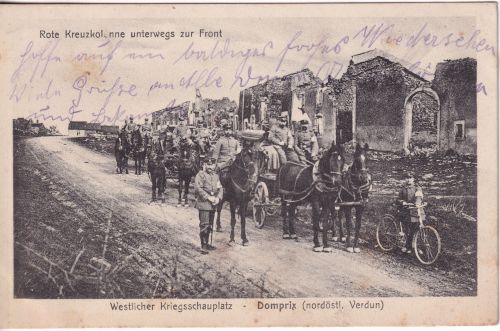 Rote Kreuzkol. nne unterwegs zur Front
hoffe auf ein baldiges frohes Wiedersehen
Viele Grüße an alle
und
Westlicher Kriegsschauplatz - Domprix (nordöstl. Verdun)